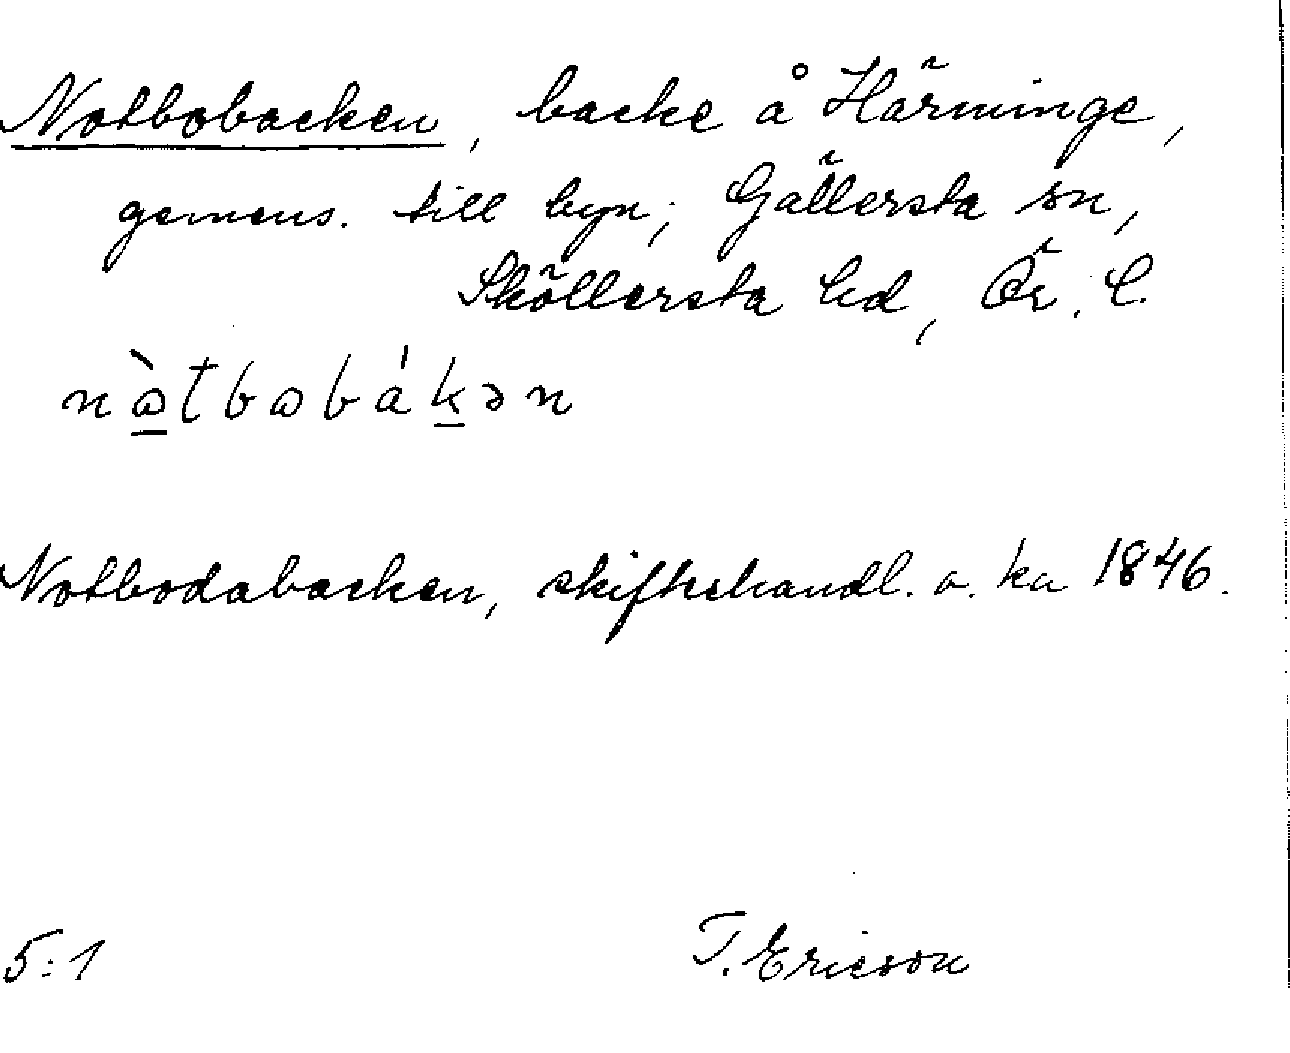 Notbobacken, backe å Härminge,
gemens. till byn; Gällersta sn,
Sköllersta hd, Ör. l.
nɷ̀tbɷbákən
Notbodabacken, skifteshandl. o. ka 1846.
5:1 T. Ericson